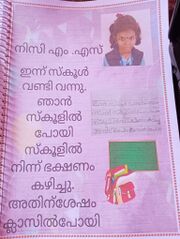 നിസി എം .എസ്
ഇന്ന് സ്കൂൾ
വണ്ടി വന്നു.
ഞാൻ
സ്കൂളിൽ
പോയി
സ്കൂളിൽ
നിന്ന് ഭക്ഷണം
കഴിച്ചു.
അതിന്ശേഷം
ക്ലാസിൽപോയി